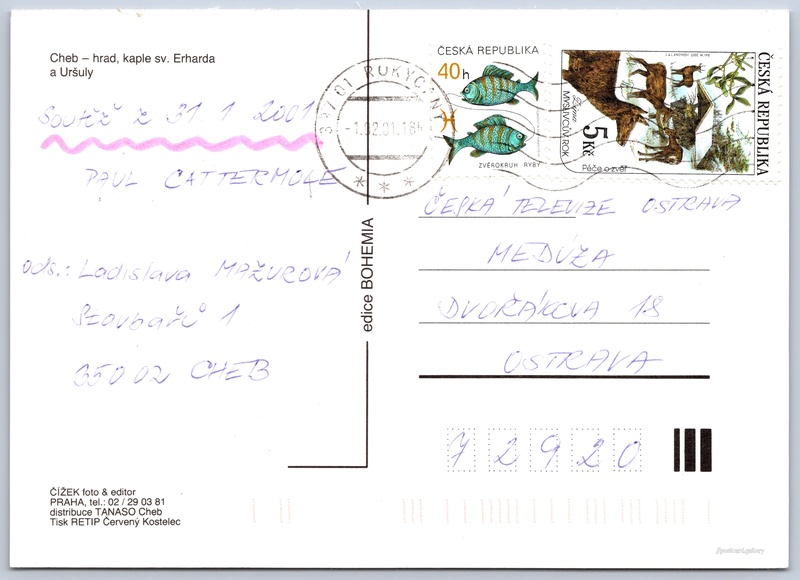 Cheb – hrad, kaple sv. Erharda
a Uršuly
Soutěž z 31. 1 2001
PAUL CATTERMOLE
ods.: Ladislava MAŽUROVÁ
Stavbařů 1
350 02 CHEB
ČÍŽEK foto & editor
PRAHA, tel.: 02 / 29 03 81
distribuce TANASO Cheb
Tisk RETIP Červený Kostelec
edice BOHEMIA
337 01 ROKYCANY
-1.02.01.18
ČESKÁ REPUBLIKA
40h
ZVĚROKRUH RYBY
ČESKÁ REPUBLIKA
Zima
MYSLIVCŮV ROK
5 Kč
Péče o zvěř
ČESKÁ TELEVIZE OSTRAVA
MEDÚZA
DVOŘÁKOVA 18
OSTRAVA
72920
//postcard.gallery